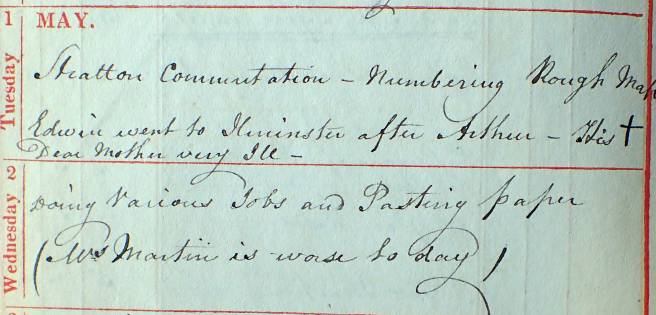 1 MAY.
Tuesday
Stratton Commutation - Numbering Rough Map
Edwin went to Ilminster after Arthur - His †
Dear Mother very Ill -
2
Wednesday
Doing Various Jobs and Pasting paper
(Mrs Martin is worse to day)